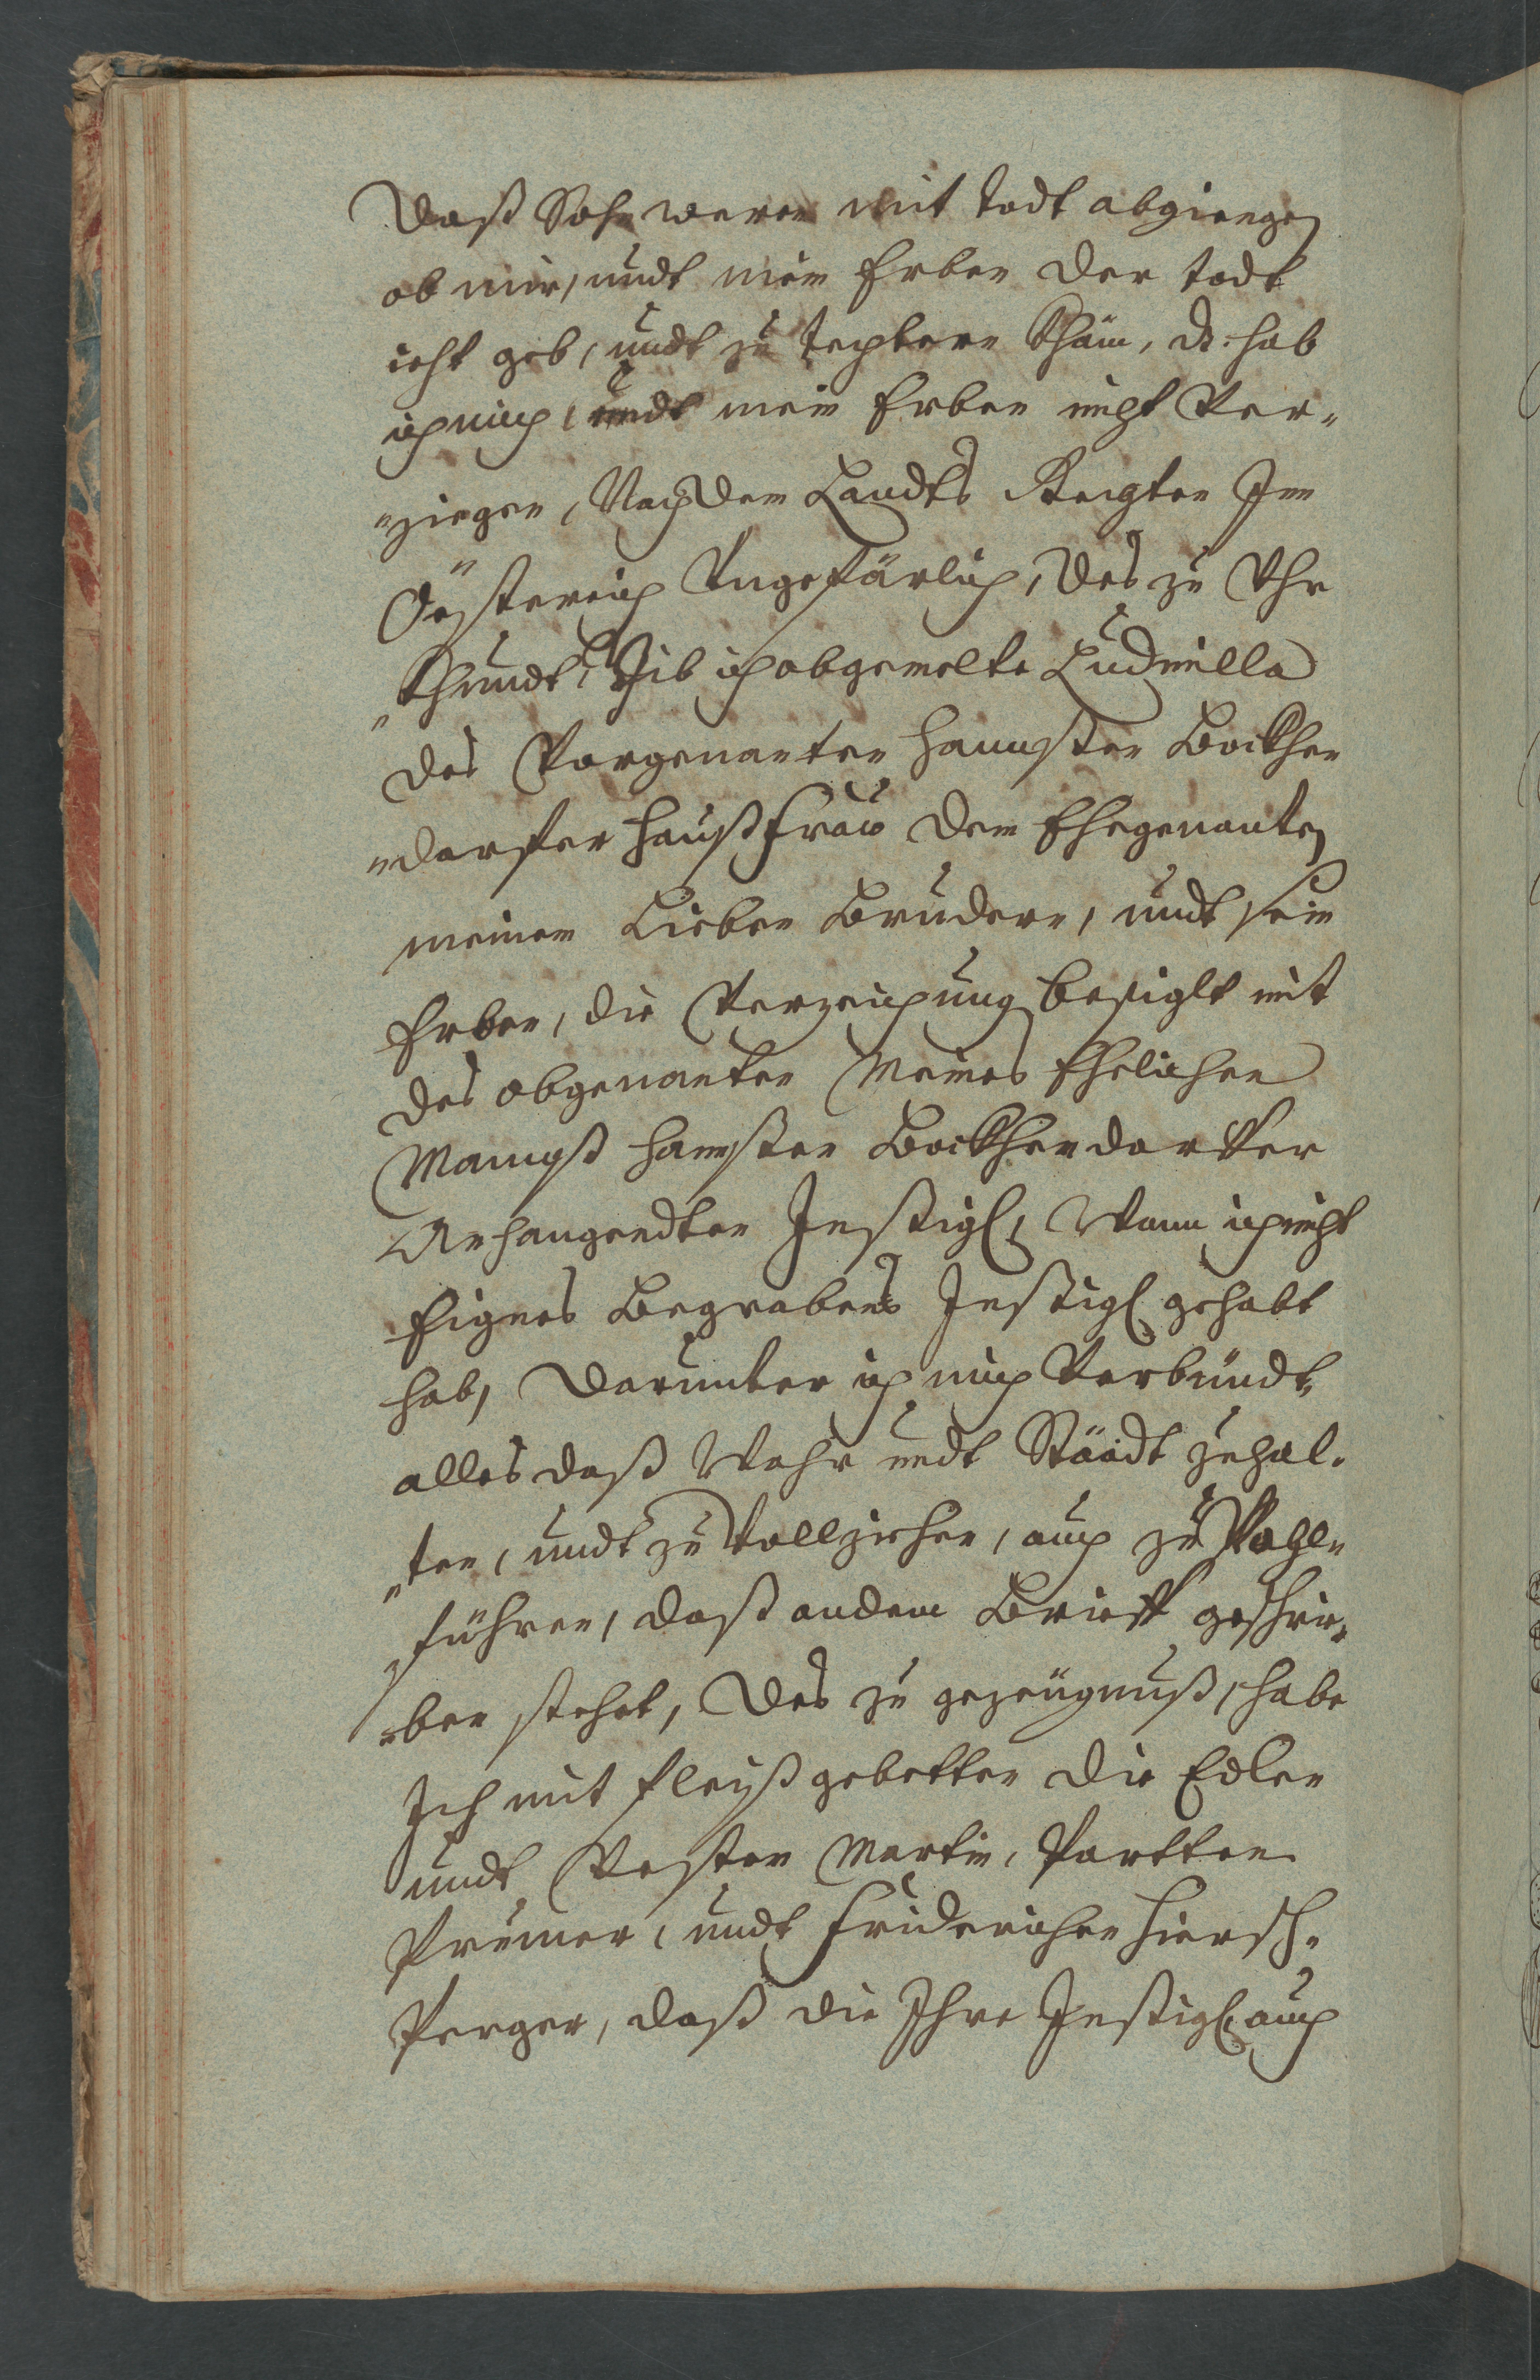 Daß Sohn weren mit todt abgiengen
ob mir, undt mein Erben der todt
icht geb, undt zu Techtern Khäm, d: hab
ich mich, undt mein Erben nicht Ver¬
¬ziegen, Nach dem Landts Rechten Inn
Össtereich Ungefärlich, des zu Uhr¬
¬Khundt, Gib ich obgemelte Ludmilla
des Vorgenanten Hannßen Bockhen¬
¬dorffer Haußfrau dem Ehegenanten
meinem Lieben Brudern, undt sein
Erben, die Verzeichnung besiglt mit
des obgenanten Meines Ehelichen
Mannß Hannßen Bockhendorffer
Anhangendten Insigl, Wann ich nicht
Eignes Begrabens Insigl gehabt
hab, darunter ich mich Verbündt,
alles daß Wahr undt Stäädt zuhal¬
¬ten, undt zu Vollziehen, auch zu Vohl¬
führen, daß andem Brieff geschrie¬
¬ben stehet, des zu gezeügnuß, habe
Ich mit fleyß gebetten die Edlen
undt Vesten Martin,
undt Friderichen Hiersch¬
Perger, daß die Ihre Insigl auch